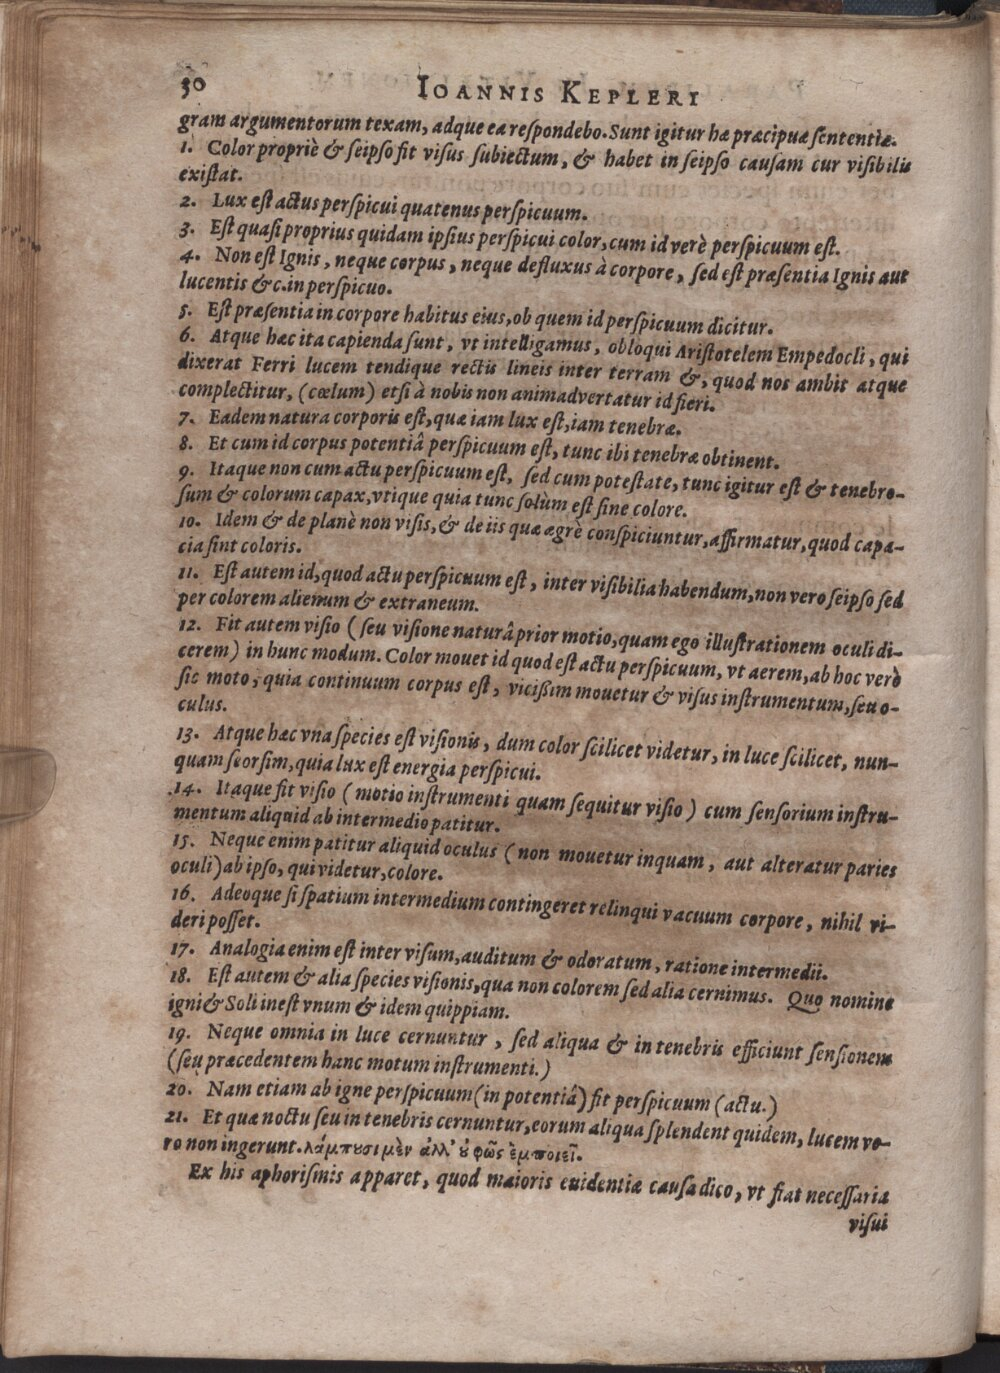 30 IOANNIS KEPLERI
gram argumentorum texam, adque ea respondebo. Sunt igitur hæ præcipuæ sententiæ.
1. Color propriè & seipso fit visus subiectum, & habet in seipso causam cur visibilis
existat.
2. Lux est actus perspicui quatenus perspicuum.
3. Est quasi proprius quidam ipsius perspicui color, cum id verè perspicuum est.
4. Non est Ignis, neque corpus, neque defluxus à corpore, sed est præsentia Ignis aut
lucentis &c. in perspicuo.
5. Est præsentia in corpore habitus eius, ob quem id perspicuum dicitur.
6. Atque hæc ita capienda sunt, vt intelligamus, obloqui Aristotelem Empedocli, qui
dixerat Ferri lucem tendique rectis lineis inter terram &, quod nos ambit atque
complectitur, (cœlum) etsi à nobis non animadvertatur id fieri.
7. Eadem natura corporis est, quæ iam lux est, iam tenebræ.
8. Et cum id corpus potentiâ perspicuum est, tunc ibi tenebræ obtinent.
9. Itaque non cum actu perspicuum est, sed cum potestate, tunc igitur est & tenebro-
sum & colorum capax, vtique quia tunc solùm est sine colore.
10. Idem & de planè non visis, & de iis quæ ægrè conspiciuntur, affirmatur, quod capa-
cia sint coloris.
11. Est autem id, quod actu perspicuum est, inter visibilia habendum, non vero seipso sed
per colorem alienum & extraneum.
12. Fit autem visio (seu visione naturâ prior motio, quam ego illustrationem oculi di-
cerem) in hunc modum. Color mouet id quod est actu perspicuum, vt aerem, ab hoc verò
sic moto, quia continuum corpus est, vicißim mouetur & visus instrumentum, seu o-
culus.
13. Atque hæc vna species est visionis, dum color scilicet videtur, in luce scilicet, nun-
quam seorsim, quia lux est energia perspicui.
14. Itaque fit visio (motio instrumenti quam sequitur visio) cum sensorium instru-
mentum aliquid ab intermedio patitur.
15. Neque enim patitur aliquid oculus (non mouetur inquam, aut alteratur paries
oculi) ab ipso, qui videtur, colore.
16. Adeoque si spatium intermedium contingeret relinqui vacuum corpore, nihil vi-
deri posset.
17. Analogia enim est inter visum, auditum & odoratum, ratione intermedii.
18. Est autem & alia species visionis, qua non colorem sed alia cernimus. Quo nomine
igni & Soli inest vnum & idem quippiam.
19. Neque omnia in luce cernuntur, sed aliqua & in tenebris efficiunt sensionem
(seu præcedentem hanc motum instrumenti.)
20. Nam etiam ab igne perspicuum (in potentiâ) fit perspicuum (actu.)
21. Et quæ noctu seu in tenebris cernuntur, eorum aliqua splendent quidem, lucem ve-
ro non ingerunt. λάμπουσι μὲν ἀλλ' οὐ φῶς ἐμποιεῖ.
Ex his aphorismis apparet, quod maioris euidentiæ causa dico, vt fiat necessaria
visui